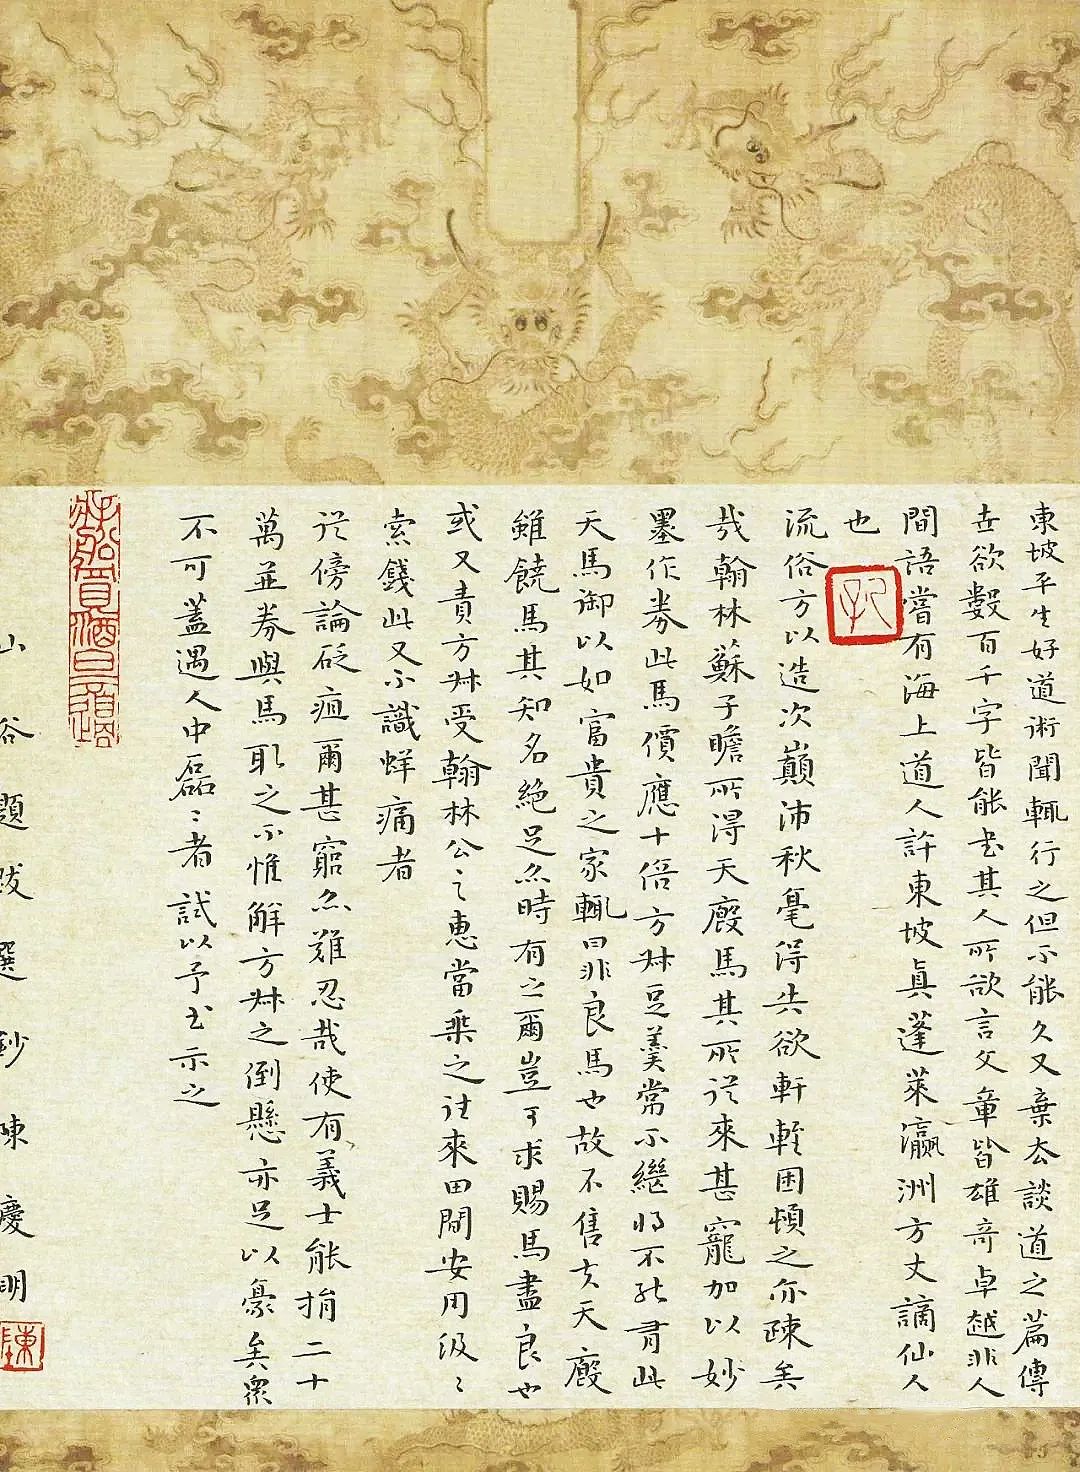 東坡平生好道術聞輒行之但不能久又棄去談道之篇傳
世欲數百千字皆能書其人所欲言文章皆雄奇卓越非人
間語嘗有海上道人許東坡真蓬萊瀛洲方丈謫仙人
也
流俗方以造次顛沛秋毫得失欲軒輊困頓之亦疎矣
哉翰林蘇子瞻所得天廄馬其所從來甚寵加以妙
墨作券此馬價應十倍方叔豆羹常不繼將不能有此
天馬御以如富貴之家輒曰非良馬也故不售夫天廄
雖饒馬其知名絕足亦時有之爾豈可求賜馬盡良也
或又責方叔受翰林公之惠當乘之往來田間安用汲〻
索錢此又不識蛘痛者
從傍論砭疽爾甚窮亦難忍哉使有義士能捐二十
萬並券與馬取之不惟解方叔之倒懸亦足以豪矣眾
不可蓋遇人中磊〻者試以予書示之
山谷題跋選鈔陳慶明
陳